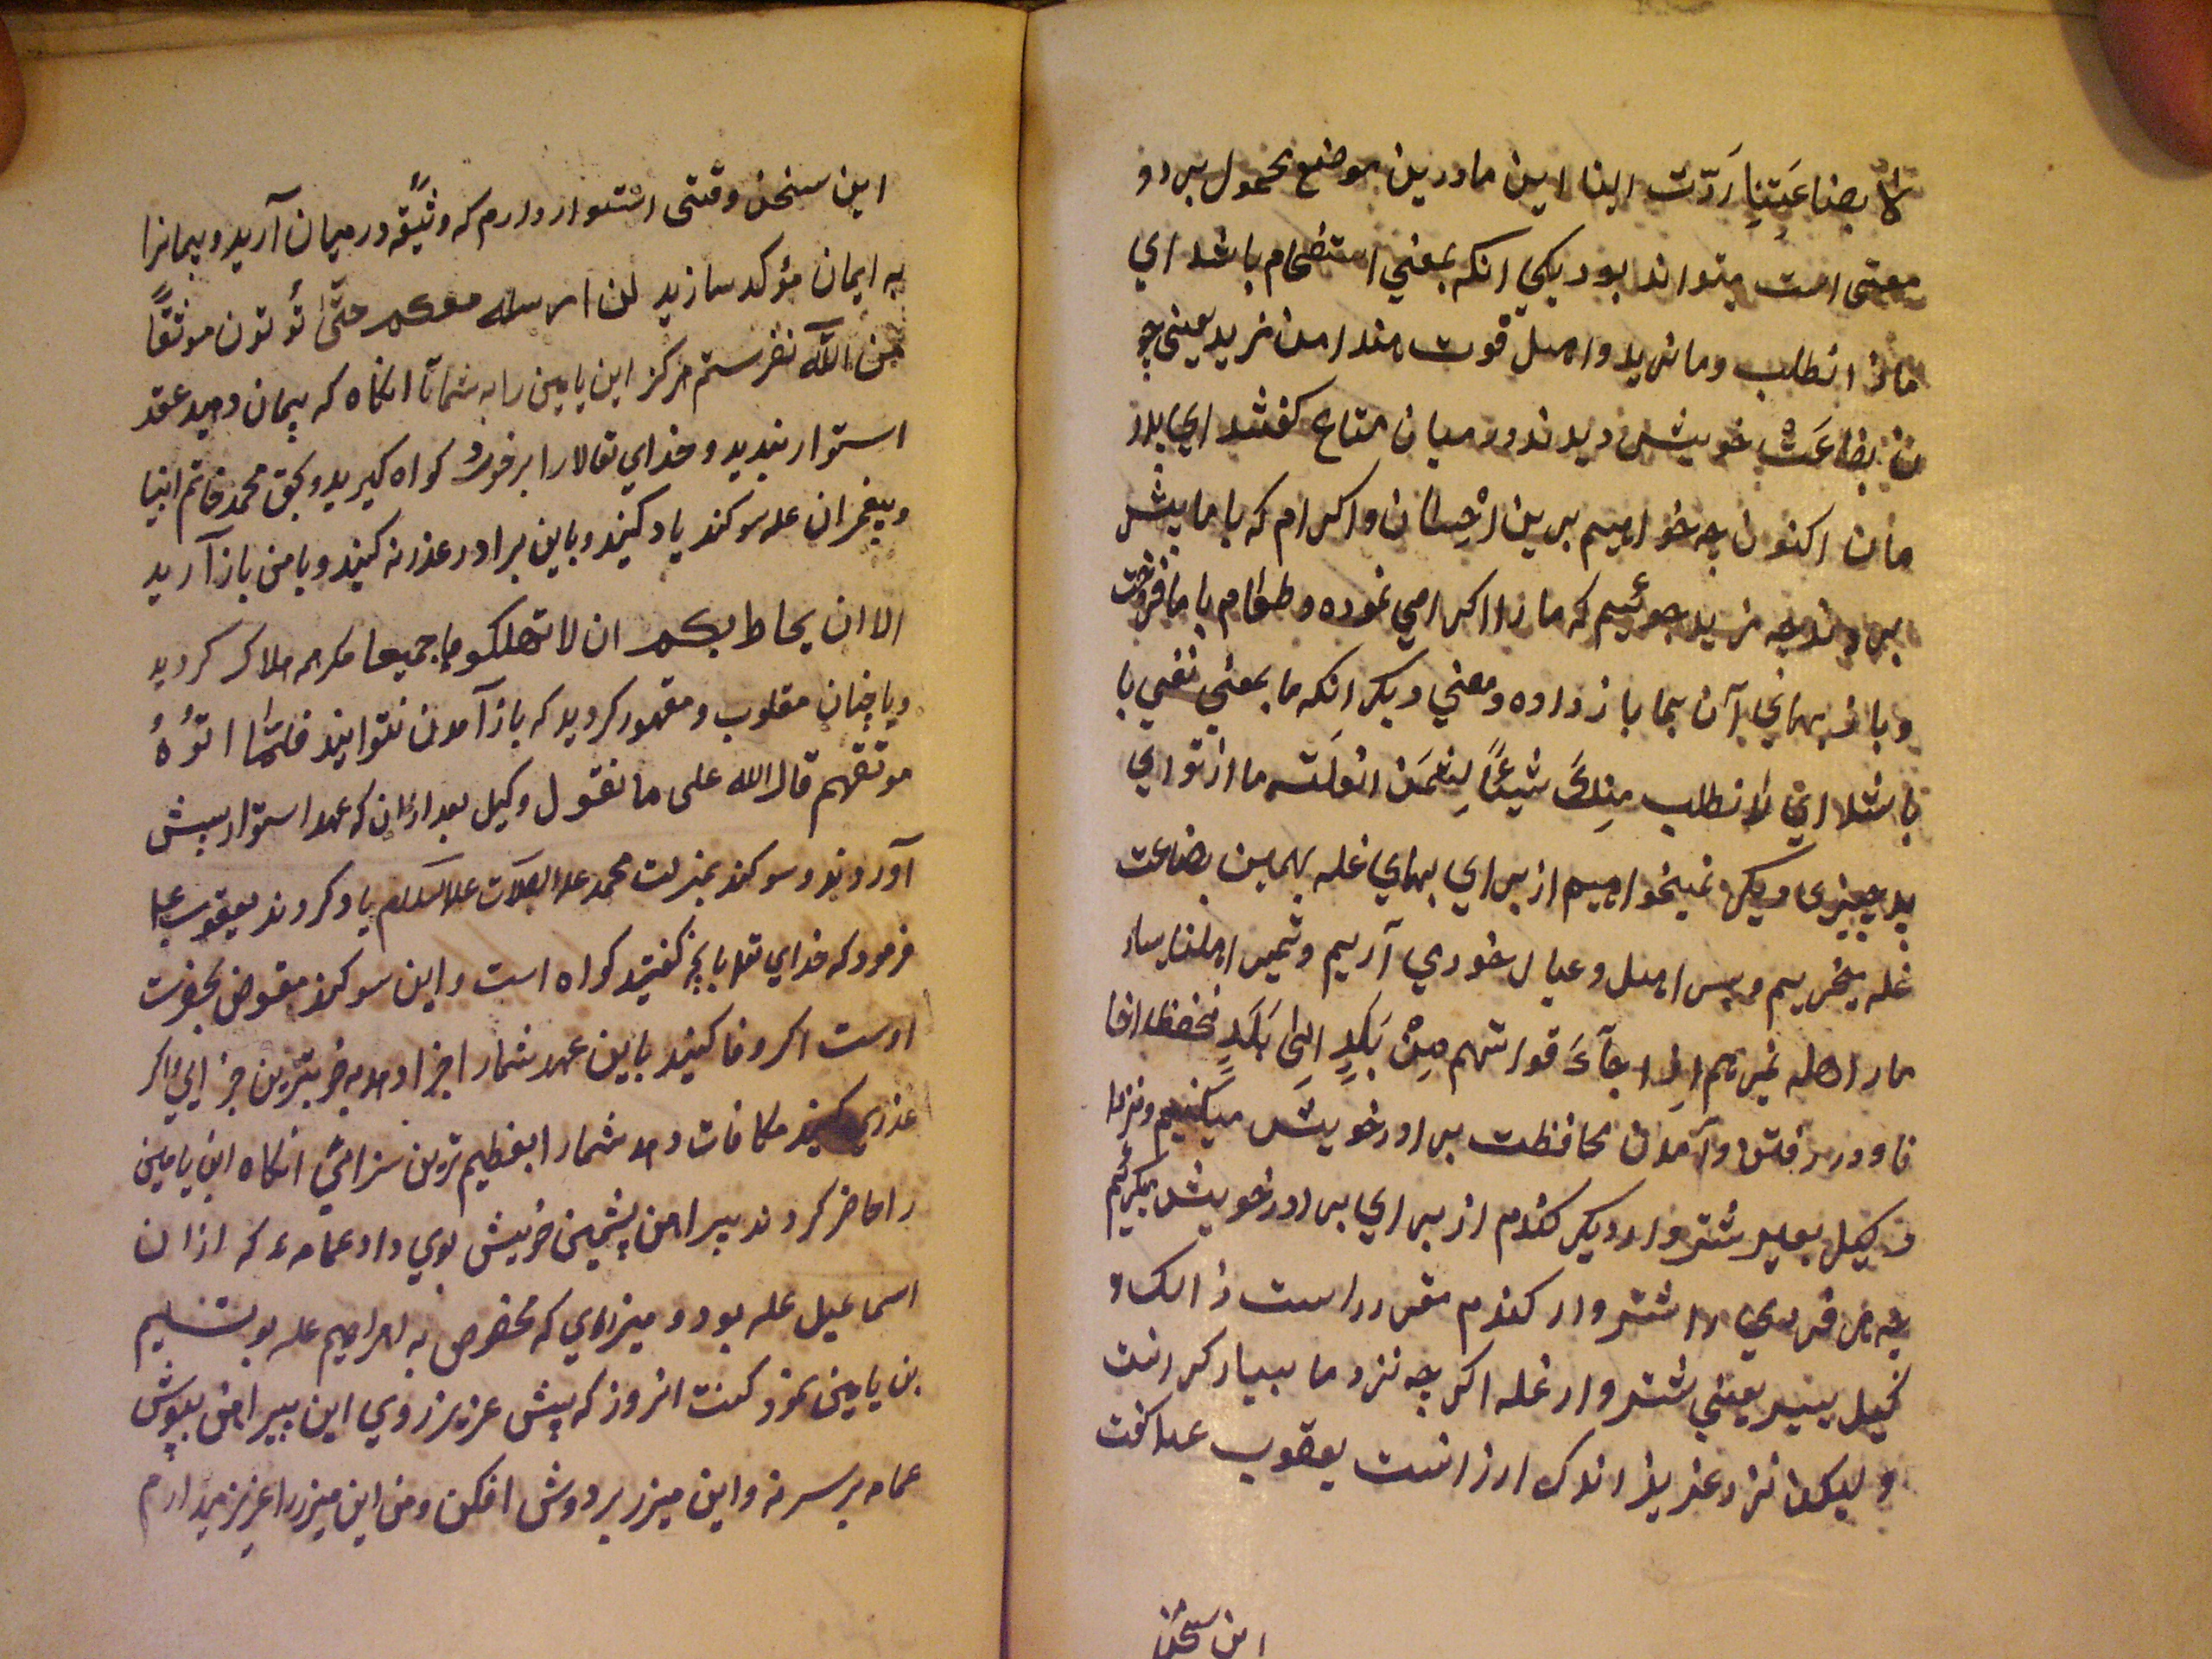 بضاعتنا ردّت الینا این ما درین موضع محمول بر دو
معنی است میتواند بود یکی انکه بمعنی استفهام باشد ای
ماذا انطلب وما نرید و اهل قوت مندا من نرید یعنی چو
ن بضاعت خویش دیدند در میان متاع کفتند ای پدر
مان اکنون چه خواهیم برین احسان و اکرام که با ما پیش
بردند چه مزید جوئیم که ما را اکرامی نموده و طعام با ما فروخت
و باز بهای آن بما باز داده و معنی دیکر انکه ما بمعنی نفی با
باشد ای لا نطلب منک شیئًا ما از تو ای
پدر چیزی دیکر نمیخواهیم از برای بهای غله بهمین بضاعت
غله میخریم و پس اهل و عیال خود می آریم و نمیر اهلنا
اذا جآء من بَلَدٍ الی بَلَدٍ و نحفظ اخا
نا و در رفتن و آمدن محافظت برادر خویش میکنیم و نزدا
د کیل بعیر شتر وار دیکر کندم از برای برادر خویش بکریم
چه هر فردی را شتر وار کندم مقرر است ذالک
کیل یسیر یعنی شتر وار غله اکر چه نزد ما بسیار کرانست
و لیکن نزد عزیز اندک ارزانست یعقوب علیه کفت
این سخن
این سخن وقتی استوار دارم که وثیقه در میان آرید و پیمانرا
به ایمان مؤکد سازید لن ارسله معکم حتّی تؤتون موثقًا
من الله نفرستم هرکز ابن یامین را به شما تا انکاه که پیمان دهید عقد
استوار بندید و خدای تعالا را بر خود کواه کیرید و بحق محمد خاتم انبیا
و پیغمران علیه سوکند یاد کنید و باین برادر عذر نه کنید و با من باز آرید
الا ان یحاط بکم ان لا تهلکو جمیعا مکر همه هلاک کردید
و یا چنان مقلوب و مقهور کردید که باز آمدن نتوانید فلمّا اتوهُ
موثقهم قال الله علی ما نقول وکیل بعد ازان که عهد استوار پیش
آوردند و سوکند بمنزلت محمد علیه الصلات علیه السلام یاد کردند یعقوب علیه
فرمود که خدای تعلا بانچه کفتید کواه است و این سوکند مفوض بحضرت
اوست اکر وفا کنید باین عهد شمار اجزا دهد به خربترین جزایی و اکر
عذری کنید مکافات دهد شمار ابعظیم ترین سزامی انکاه ابن یامین
را حاضر کردند پیراهن پشمین خویش بوی داد عمامهء که ازان
اسماعیل علیه بود و میزرای که مخصوص به ابراهیم علیه بود تسلیم
بن یامین نمود کفت انروز که پیش عزیز روی این پیراهن بپوش
عمامه بر سر نه و این میزر بر دوش افکن و من این میزر را عزیز میدارم